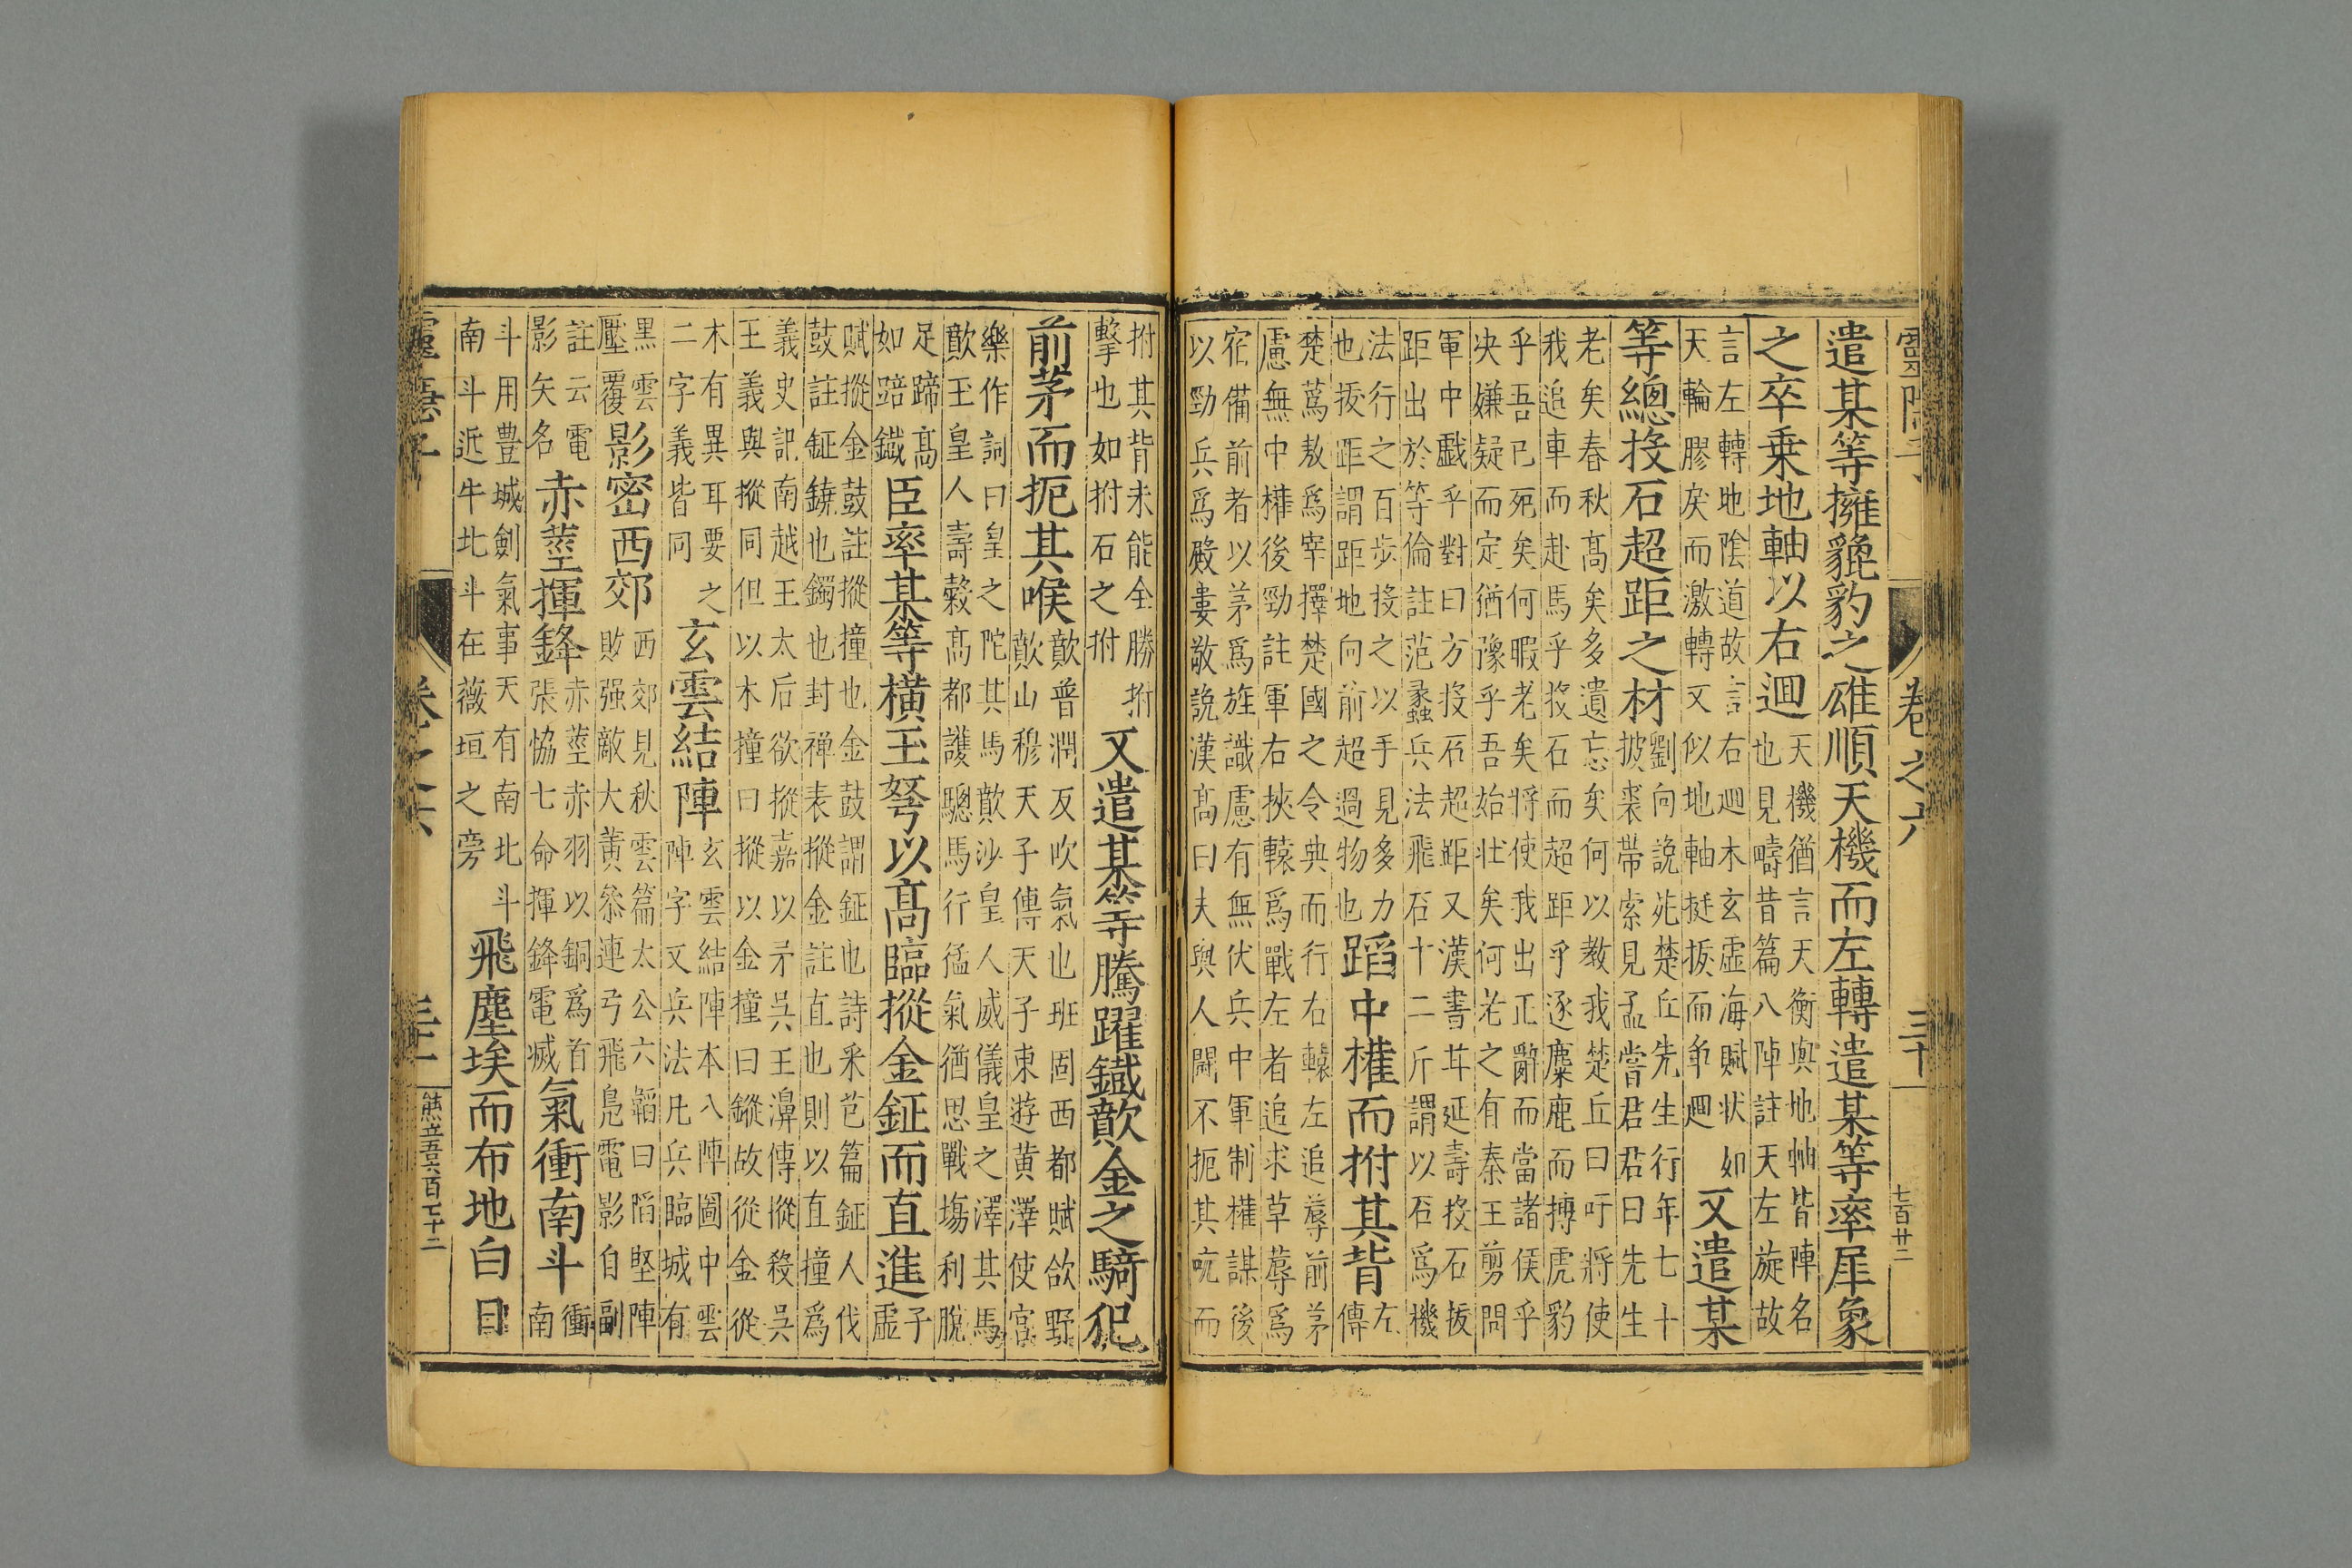 遣某等擁貔豹之雄順天機而左轉遣某等率犀象
之卒乗地軸以右迴天機猶言天衡與地軸皆陣名
也見疇昔篇八陣註天左旋故
言左轉地隂道故言右迴木玄虛海賦状如
天輪膠戾而激轉又似地軸挺拔而争迴又遣某
等緫投石超距之材劉向說苑楚丘先生行年七十
披裘帶索見孟嘗君君曰先生
老矣春秋髙矣多遺忘矣何以教我楚丘曰吁将使
我追車而赴馬乎投石而超距乎逐麋鹿而搏虎豹
乎吾已死矣何暇老矣将使我出正辭而當諸侯乎
决嫌疑而定猶豫乎吾始壮矣何老之有秦王剪問
軍中戲乎對曰方投石超距又漢書甘延壽投石拔
距出於等倫註范蠡兵法飛石十二斤謂以石爲機
法行之百歩投之以手見多力
也拔距謂距地向前超過物也蹈中權而拊其背左
傳
楚蔿敖爲宰擇楚國之令典而行右轅左追蓐前茅
慮無中權後勁註軍右挾轅爲戰左者追求草蓐爲
宿備前者以茅爲旌識慮有無伏兵中軍制權謀後
以勁兵爲殿婁敬說漢髙曰夫與人鬬不扼其吭而
拊其背未能全勝拊
擊也如拊石之拊又遣某等騰躍鐡歕金之騎犯
前茅而扼其喉歕普潤反吹氣也班固西都賦欱野
歕山穆天子傳天子東遊黄澤使宫
樂作詞曰皇之陀其馬歕沙皇人威儀皇之澤其馬
歕玉皇人壽榖髙都護驄馬行猛氣猶思戰塲利脫
足蹄髙
如踣鐡臣率某等橫玉弩以髙臨摐金鉦而直進子
虛
賦摐金鼓註摐撞也金鼓謂鉦也詩采芑篇鉦人伐
鼓註鉦鐃也鐲也封禅表摐金註直也則以直撞爲
義史記南越王太后欲摐嘉以矛吳王濞傳摐殺吳
王義與摐同但以木撞曰摐以金撞曰鏦故從金從
木有異耳要之
二字義皆同玄雲結陣玄雲結陣本八陣圖中雲
陣字又兵法凡兵臨城有
黒雲
壓覆影密西郊西郊見秋雲篇太公六韜曰陷堅陣
敗强敵大黄叅連弓飛凫電影自副
註云電
影矢名赤莖揮鋒赤莖赤羽以銅爲首
張恊七命揮鋒電滅氣衝南斗衝
南
斗用豊城劍氣事天有南北斗
南斗近牛北斗在薇垣之旁飛塵埃而布地白日
卷之六
三十
七百廿二
熊立五百六百七十二